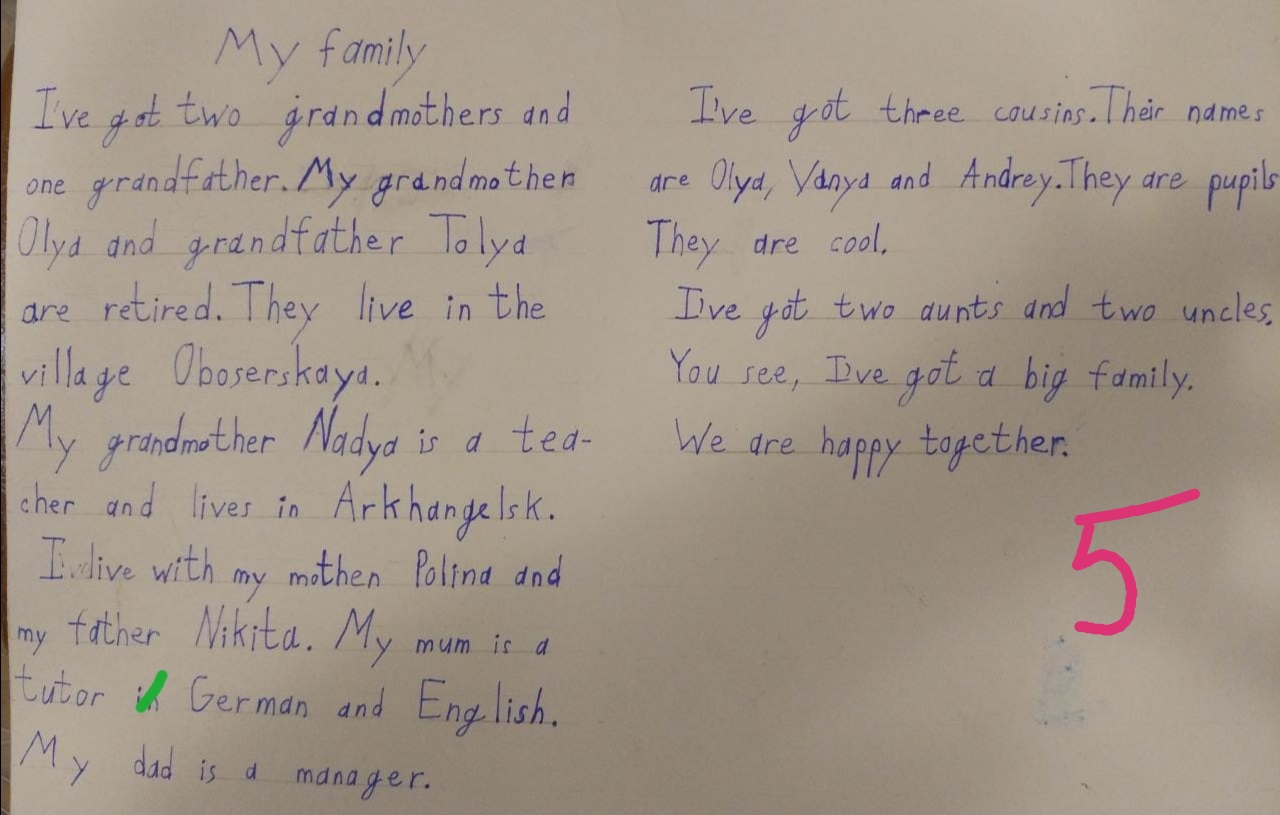 My family
I've got two grandmothers and
one grandfather. My grandmother
Olya and grandfather Tolya
are retired. They live in the
village Oboserskaya.
My grandmother Nadya is a tea-
cher and lives in Arkhangelsk.
I live with my mother Polina and
my father Nikita. My mum is a
tutor in German and English.
My dad is a manager.
I've got three cousins. Their names
are Olya, Vanya and Andrey. They are pupils
They are cool.
I've got two aunts and two uncles.
You see, I've got a big family.
We are happy together.
5